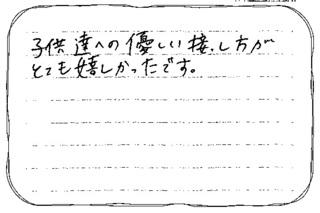 子供達への優しい接し方が
とても嬉しかったです。